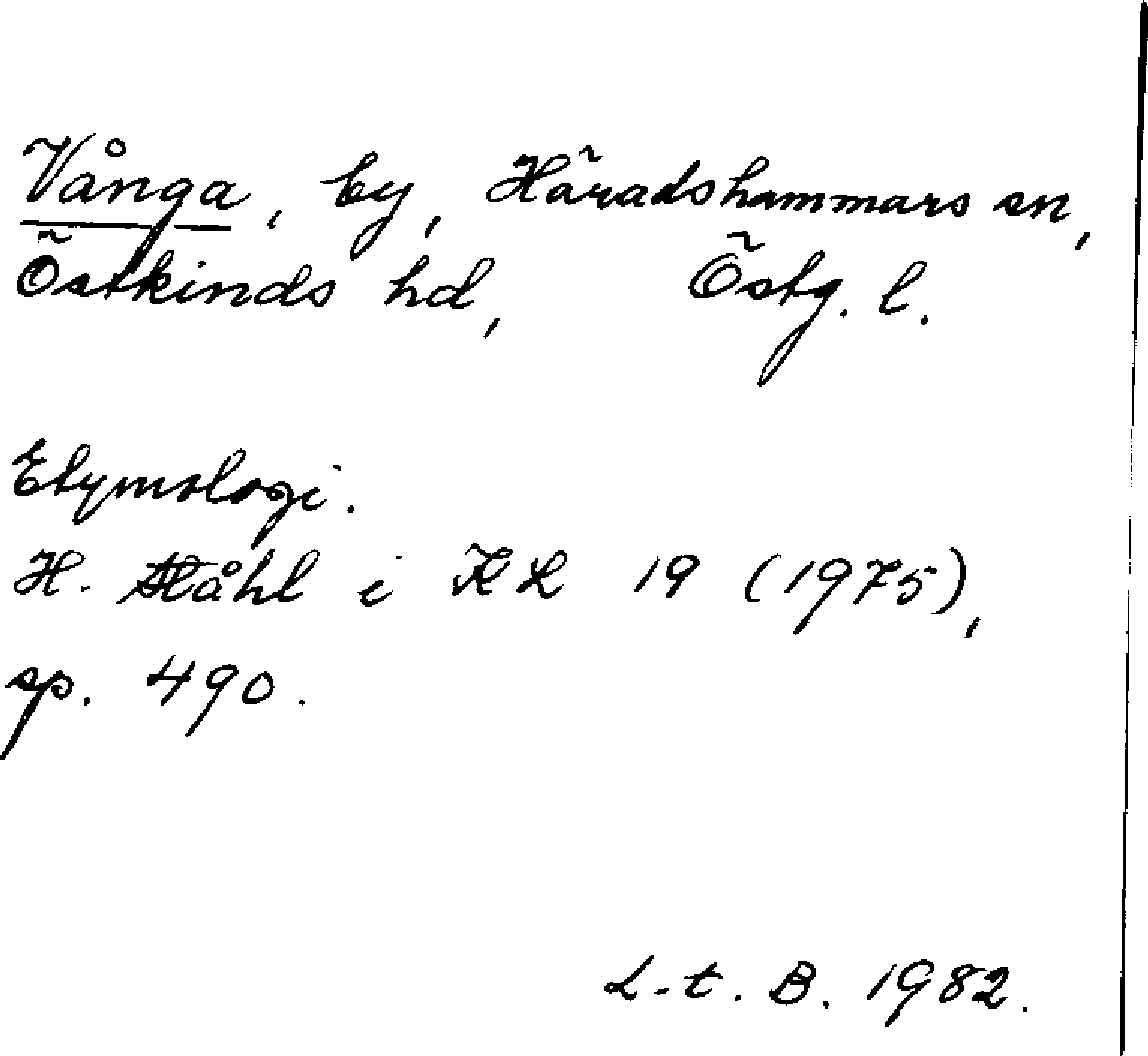 Vånga, by, Häradshammars sn,
Östkinds hd, Östg. l.
Etymologi.
H. Ståhl i KL 19 (1975),
sp. 490.
L-t. B. 1982.